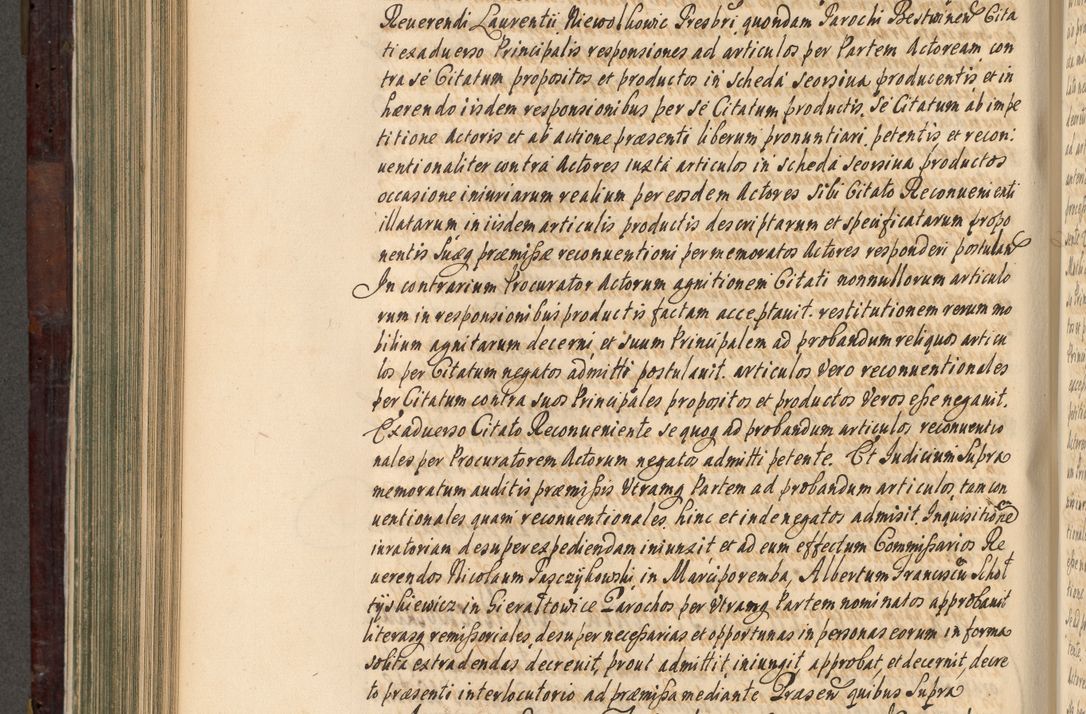 Reuerendi Laurentii Niewolkowic Presbri quondam Parochi Bestwinen Cita
ti exaduerso Principalis responsiones ad articulos per Partem Actoream con
tra sé Citatum propositos et productos in scheda seorsiua producentis, et in
hærendo iisdem responsionibus per sé Citatum productis, Sé Citatum ab impe
titione Actoris et ab actione præsenti liberum pronuntiari petentis et recon:
uentionaliter contra Actores iuxta articulos in scheda seorsiua productos
occasione iniuriarum realium per eosdem Actores sibi Citato Reconuenienti
illatarum in iisdem articulis productis descriptarum et specificatarum propo
nentis Suæq præmissæ reconuentioni per memoratos Actores responderi postulan
In contrarium Procurator Actorum agnitionem Citati nonnullorum articulo
rum in responsionibus productis factam acceptauit. restitutionem rerum mo
bilium agnitarum decerni, et suum Principalem ad probandum reliquos articu
los per Citatum negatos admitti postulauit. articulos Vero reconuentionales
per Citatum contra suos Principales propositos et productos Veros esse negauit.
Exaduerso Citato Reconueniente se quoq ad probandum articulos reconuentio
nales per Procuratorem Actorum negatos admitti petente. Et Iudicium Supra
memoratum auditis præmissis Vtramq Partem ad probandum articulos, tam con
uentionales quam reconuentionales hinc et inde negatos admisit. Inquisitione
iuratoriam desuper expediendam iniunxit et ad eum effectum Commissarios Re
uerendos Nicolaum Paszykowski, in Marciporemba, Albertum Franciscu Schol
tyskiewicz in Gierałtowice Parochos per Vtramq Partem nominatos approbauit
literasq remissoriales desuper necessarias et opportunas in personas eorum in forma
solita extradendas decreuit, prout admittit, iniungit, approbat, et decernit, decre
to præsenti interlocutorio ad præmissa mediante Præsen quibus Supra